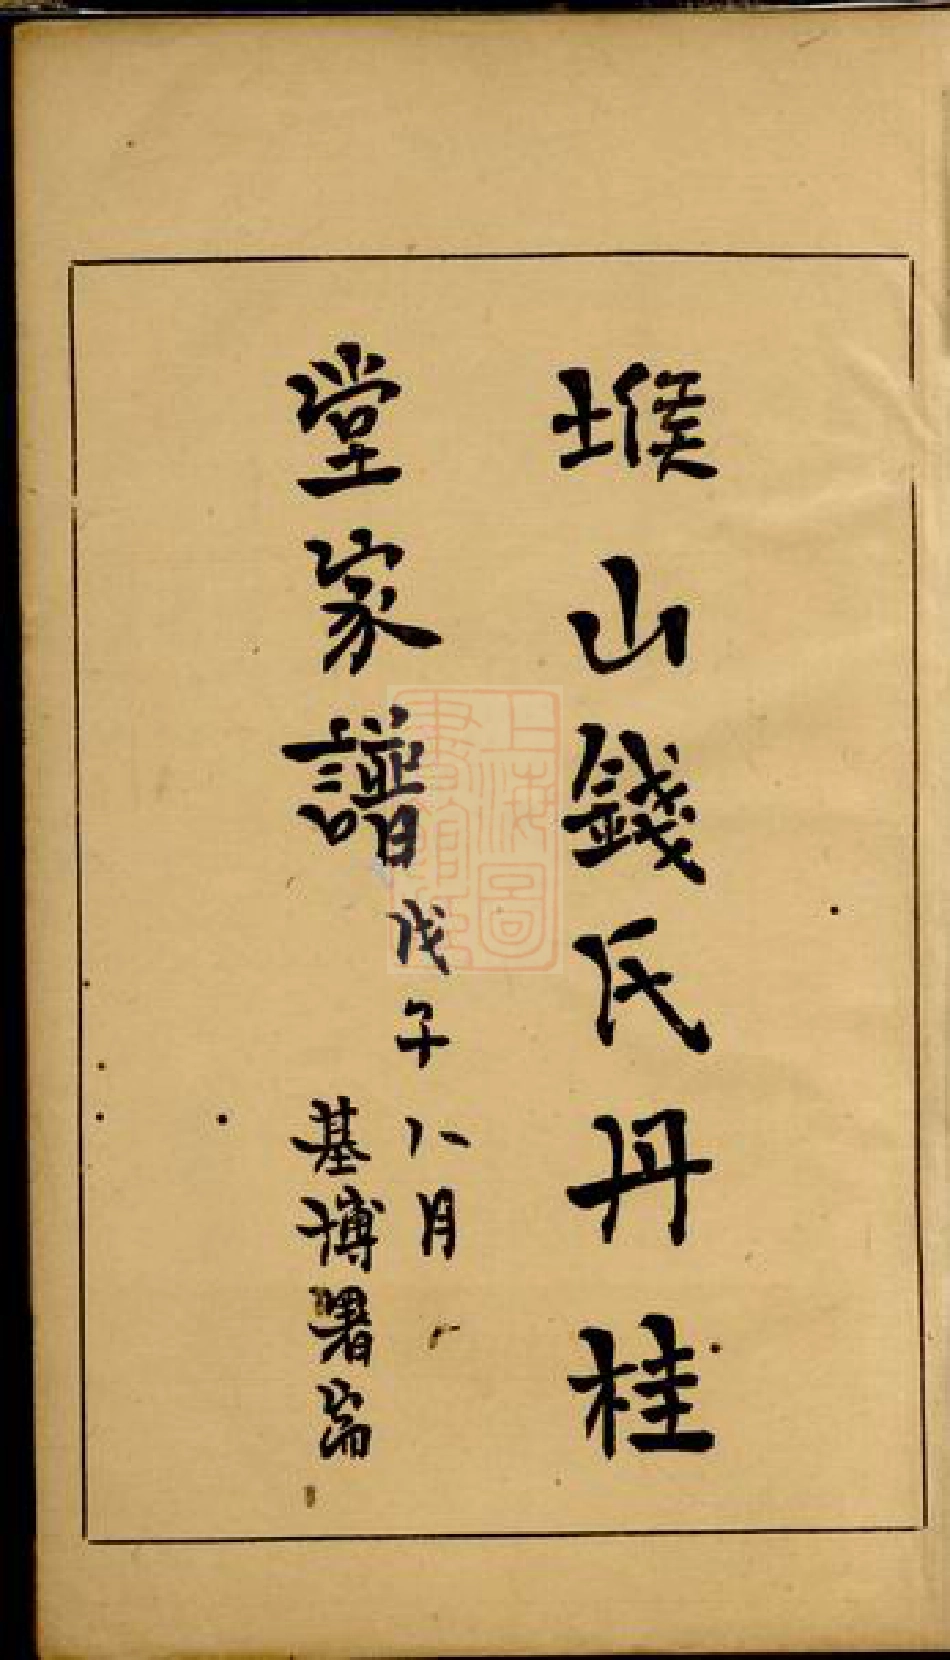 堠山錢氏丹桂
堂家譜
戊子八月
基博署耑
上海圖
書館藏